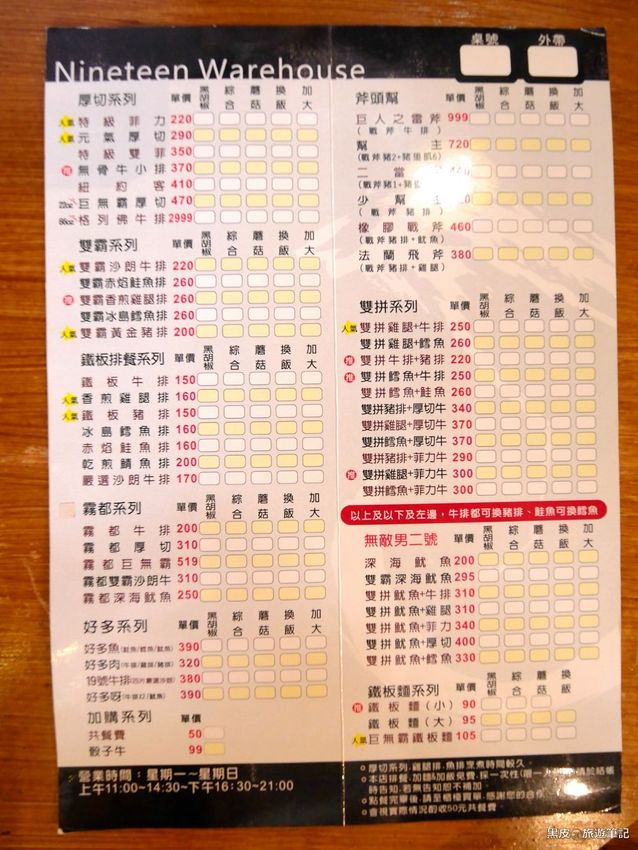 Nineteen Warehouse
桌號 外帶
厚切系列 單價 黑胡椒 綜合 蘑菇 換飯 加大
人氣 特級菲力 220
人氣 元氣厚切 290
特級雙菲 350
推 無骨牛小排 370
紐約客 410
巨無霸厚切 470
格列佛牛排 2999
雙霸系列 單價 黑胡椒 綜合 蘑菇 換飯 加大
人氣 雙霸沙朗牛排 220
雙霸赤焰鮭魚排 260
推 雙霸香煎雞腿排 260
雙霸冰島鱈魚排 260
人氣 雙霸黃金豬排 200
鐵板排餐系列 單價 黑胡椒 綜合 蘑菇 換飯 加大
鐵板牛排 150
人氣 香煎雞腿排 160
人氣 鐵板豬排 150
冰島鱈魚排 160
赤焰鮭魚排 160
乾煎鯖魚排 200
嚴選沙朗牛排 170
霧都系列 單價 黑胡椒 綜合 蘑菇 換飯 加大
霧都牛排 200
霧都厚切 310
霧都巨無霸 519
霧都雙霸沙朗牛 310
霧都深海魷魚 250
好多系列 單價 黑胡椒 綜合 蘑菇 換飯 加大
好多魚(鮭魚/鱈魚/魷魚) 390
好多肉(牛排/雞排/豬排) 320
19號牛排(25片嚴選沙朗) 380
好多呀(牛排X2/魷魚) 390
加購系列 單價
共餐費 50
骰子牛 99
營業時間：星期一~星期日
上午11:00~14:30~下午16:30~21:00
斧頭幫 單價 黑胡椒 綜合 蘑菇 換飯 加大
巨人之雷斧 999
(戰斧牛排)
幫主 720
(戰斧豬2+豬里肌6)
二當
(戰斧豬1+豬
少幫主
(戰斧豬排)
橡膠戰斧 460
(戰斧豬排+魷魚)
法蘭飛斧 380
(戰斧豬排+雞腿)
雙拼系列 單價 黑胡椒 綜合 蘑菇 換飯 加大
人氣 雙拼雞腿+牛排 250
雙拼雞腿+鱈魚 260
推 雙拼牛排+豬排 220
推 雙拼鱈魚+牛排 250
雙拼鱈魚+鮭魚 260
雙拼豬排+厚切牛 340
雙拼雞腿+厚切牛 370
雙拼鱈魚+厚切牛 370
雙拼豬排+菲力牛 290
推 雙拼雞腿+菲力牛 300
雙拼鱈魚+菲力牛 300
以上及以下及左邊，牛排都可換豬排、鮭魚可換鱈魚
無敵男二號 單價 黑胡椒 綜合 蘑菇 換飯 加大
深海魷魚 200
雙霸深海魷魚 295
雙拼魷魚+牛排 310
雙拼魷魚+雞腿 310
雙拼魷魚+菲力 340
雙拼魷魚+厚切 400
雙拼魷魚+鱈魚 330
鐵板麵系列 單價 黑胡椒 綜合 蘑菇
推 鐵板麵(小) 90
鐵板麵(大) 95
人氣 巨無霸鐵板麵 105
厚切系列、雞腿排、魚排烹煮時間較久。
本店排餐，加麵&加飯免費，採一次性
時告知，若無告知恕不補加。
點餐完畢後，請至櫃檯買單，感謝您的合作
會視實際情況酌收50元共餐費。
黑皮。旅遊筆記